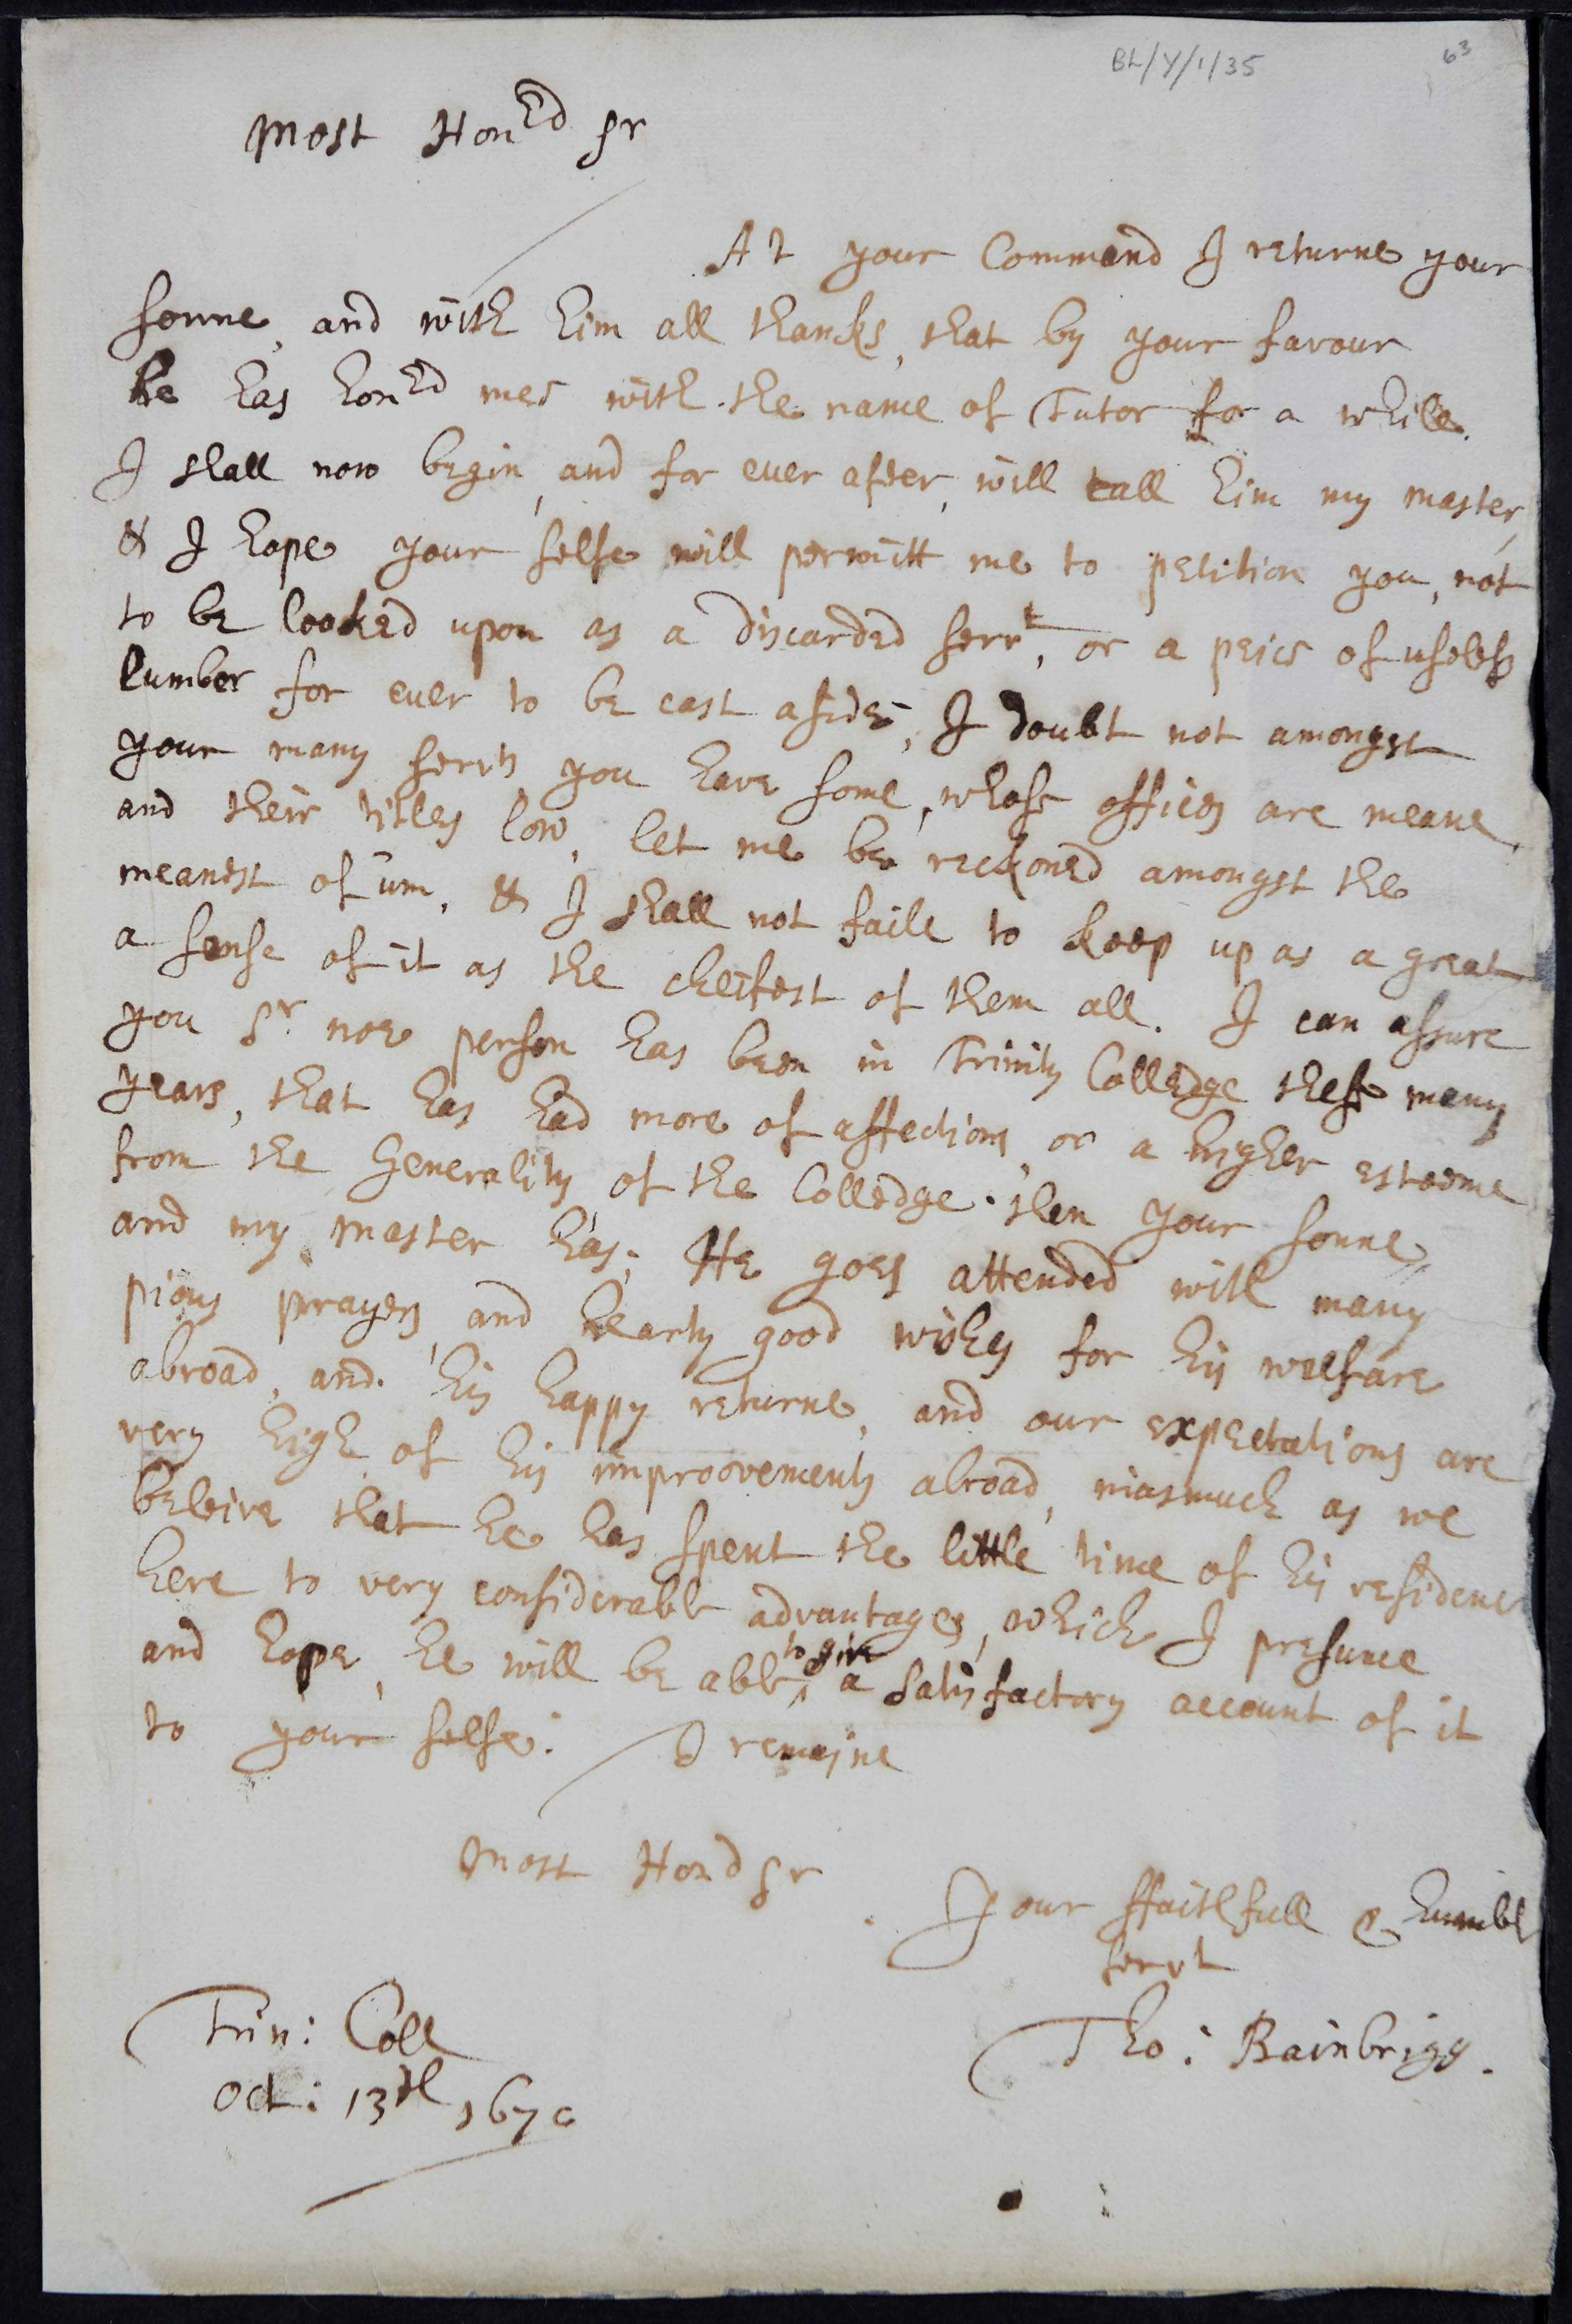 BL/Y/1/35
63
Most Hon:rd Sr
At your Command I returne your
sonne, and with him all thancks, that by your favour
he has hon:rd mee with the name of Tutor for a while.
I shall now begin, and for ever after, will call him my master,
& I hope your selfe will permitt me to petition you, not
to be looked upon as a discarded servt, or a peice of uselesse
lumber for ever to be cast aside, I doubt not amongst
your many servts you have some, whose offices are meane,
and their titles low, let me be reckoned amongst the
meanest of um, & I shall not faile to keep up as a great
a sense of it as the cheifest of them all. I can assure
you Sr noe person has been in Trinity Colledge these many
years, that has had more of affections, or a higher esteeme
from the Generality of the Colledge then your sonne,
and my master has; He goes attended with many
pious prayers, and hearty good wishes for his welfare
abroad, and his happy returne, and our expectations are
very high of his improovements abroad, inasmuch as we
beleive that he has spent the little time of his residence
here to very considerable advantages, which I presume
and hope, he will be able to give a satisfactory account of it
to your selfe: I remaine
Most Hon:d Sr
Your ffaithfull & humble
servt
Tho: Bainbrigg.
Trin: Coll
Oct: 13th 1670